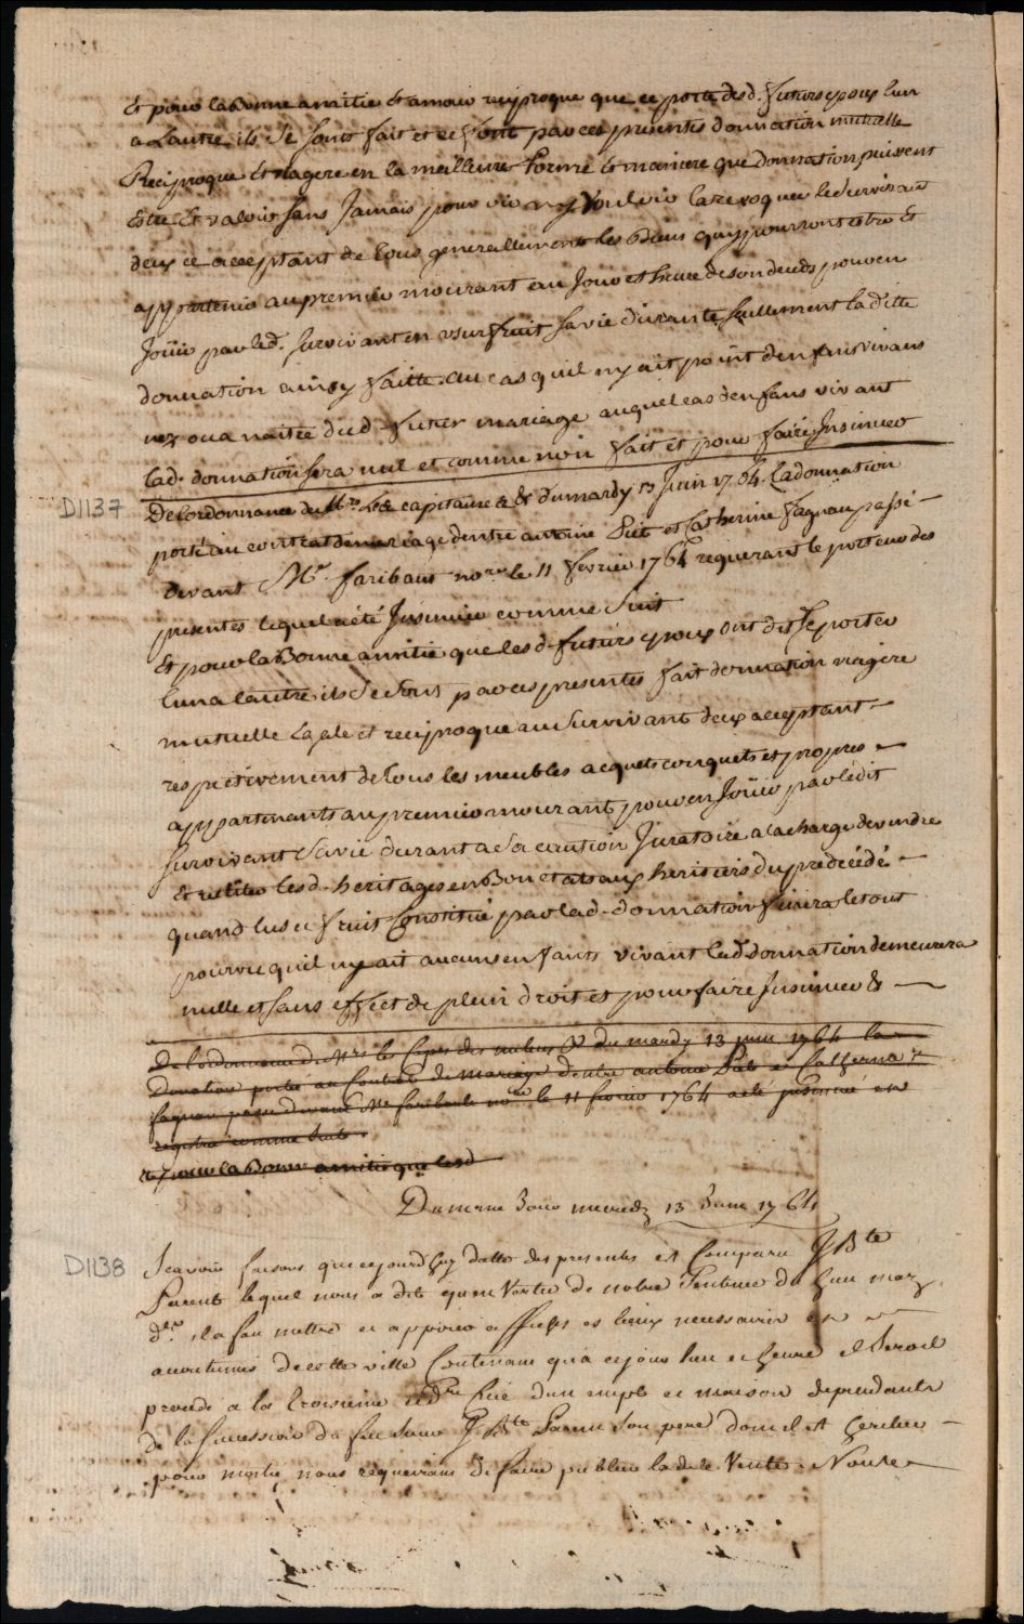 Et pour la Bonne amitie et amour reciproque que ce porte lesd. futurs epoux lun
a Lautre ils se sont fait et se font par ces presentes donnation mutuelle
Reciproque et viagere en la meilleure forme et maniere que donnation puissent
Estre Et valoir sans Jamais pour voir ny vouloir la revoquer le survivant
deux ce acceptant de tous generallement les biens quy pourront estre et
appartenir au premier mourant au Jour et heure de son deceds pour en
Joüir par led. survivant en usurfruit sa vie durante seullement la ditte
donnation ainsy faitte au cas quil ny ait point denfans vivans
nez ou a naitre dud. futur mariage auquel cas denfans vivant
lad. donnation sera nul et comme non fait et pour faire Insinuer
D1137 De lordonnance de Mrs les capitaine &c &c du mardy 13 Juin 1764. la donnation
porté au contrat de mariage dentre antoine Pié et Catherine fagnau passé
devant Mr. faribaut nore le 11 fevrier 1764 requerant le porteur des
presentes lequel a été Insinuée comme Suit
Et pour la Bonne amitie que les d. futurs epoux ont dit se porter
lun a lautre ils se sont par ces presentes fait donnation viagere
mutuelle Egale et reciproque au survivant deux acceptant
respectivement de tous les meubles acquets conquets et propres
appartenants au premier mourant pour en Joüir par ledit
survivant sa vie durant a sa caution Juratoire a la charge de rendre
Et restituer lesd. heritages en Bon etat aux heritiers du predecédé
quand lusufruit Constitué par lad. donnation finira le tout
pourvu quil ny ait aucuns enfants vivant lad. donnation demeurera
nulle et sans effect de plein droit et pour faire Insinuer &
De lordonnance de Mrs les Capes des milices &c du mardy 13 juin 1764 la
Donation portée au Contrat de mariage dentre antoine Pié et Catherine
fagnau passé devant Me faribault nore le 11 fevrier 1764 a eté Insinué en
registre comme suit
et pour la Bonne amitie que lesd
Du meme Jour mercredy 13 Juin 1764
D1138 Scavoir faisons que ce jourdhuy datte des presentes Est Comparu J Bte
Parent lequel nous a dit quen Vertu de notre Sentence du huit may
der. il a fait mettre et apposer affiches es lieux necessaires et
accoutumés de cette ville Contenant qua ce jour lieu et heure il seroit
procédé a la troisieme criée dun emplt et maison dependante
de la succession de feu sieur J Bte Parent son pere dont il Est heritier
pour moitié nous requerant de faire publier ladite Vente Nous